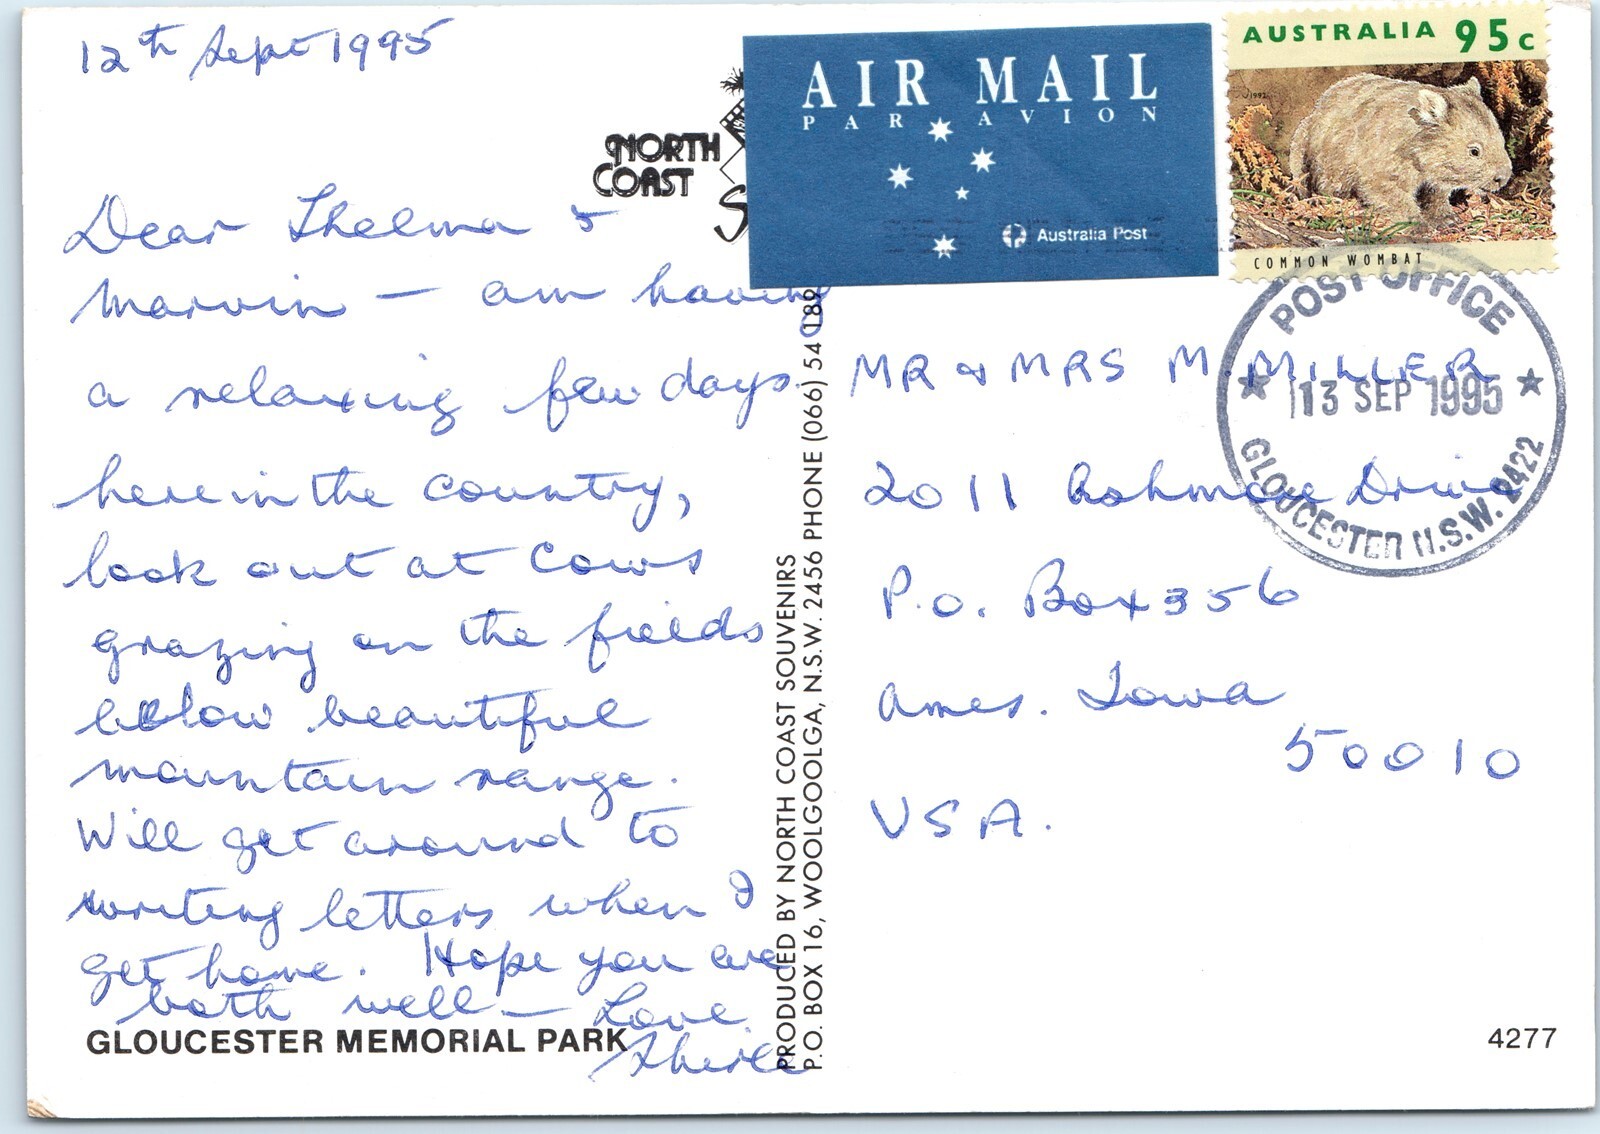 12th Sept 1995
NORTH
COAST
Dear Thelma &
Marvin – am having
a relaxing few days
here in the country,
look out at cows
grazing on the fields
below beautiful
mountain range.
Will get around to
writing letters when I
get home. Hope you are
both well – Love
GLOUCESTER MEMORIAL PARK
PRODUCED BY NORTH COAST SOUVENIRS
P.O. BOX 16, WOOLGOOLGA, N.S.W. 2456 PHONE (066) 54 189
AIR MAIL
PAR AVION
Australia Post
AUSTRALIA 95c
COMMON WOMBAT
POST OFFICE
13 SEP 1995
GLOUCESTER N.S.W. 2422
MR & MRS M. MILLER
2011 Ashmore Drive
P.O. Box 356
Ames. Iowa
50010
USA.
4277